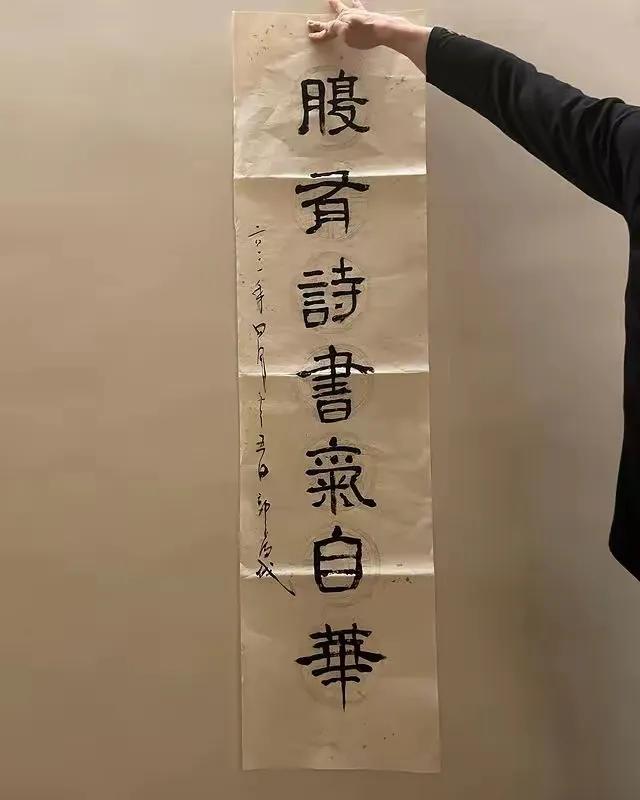 腹有詩書氣自華
二〇二一年四月十五日